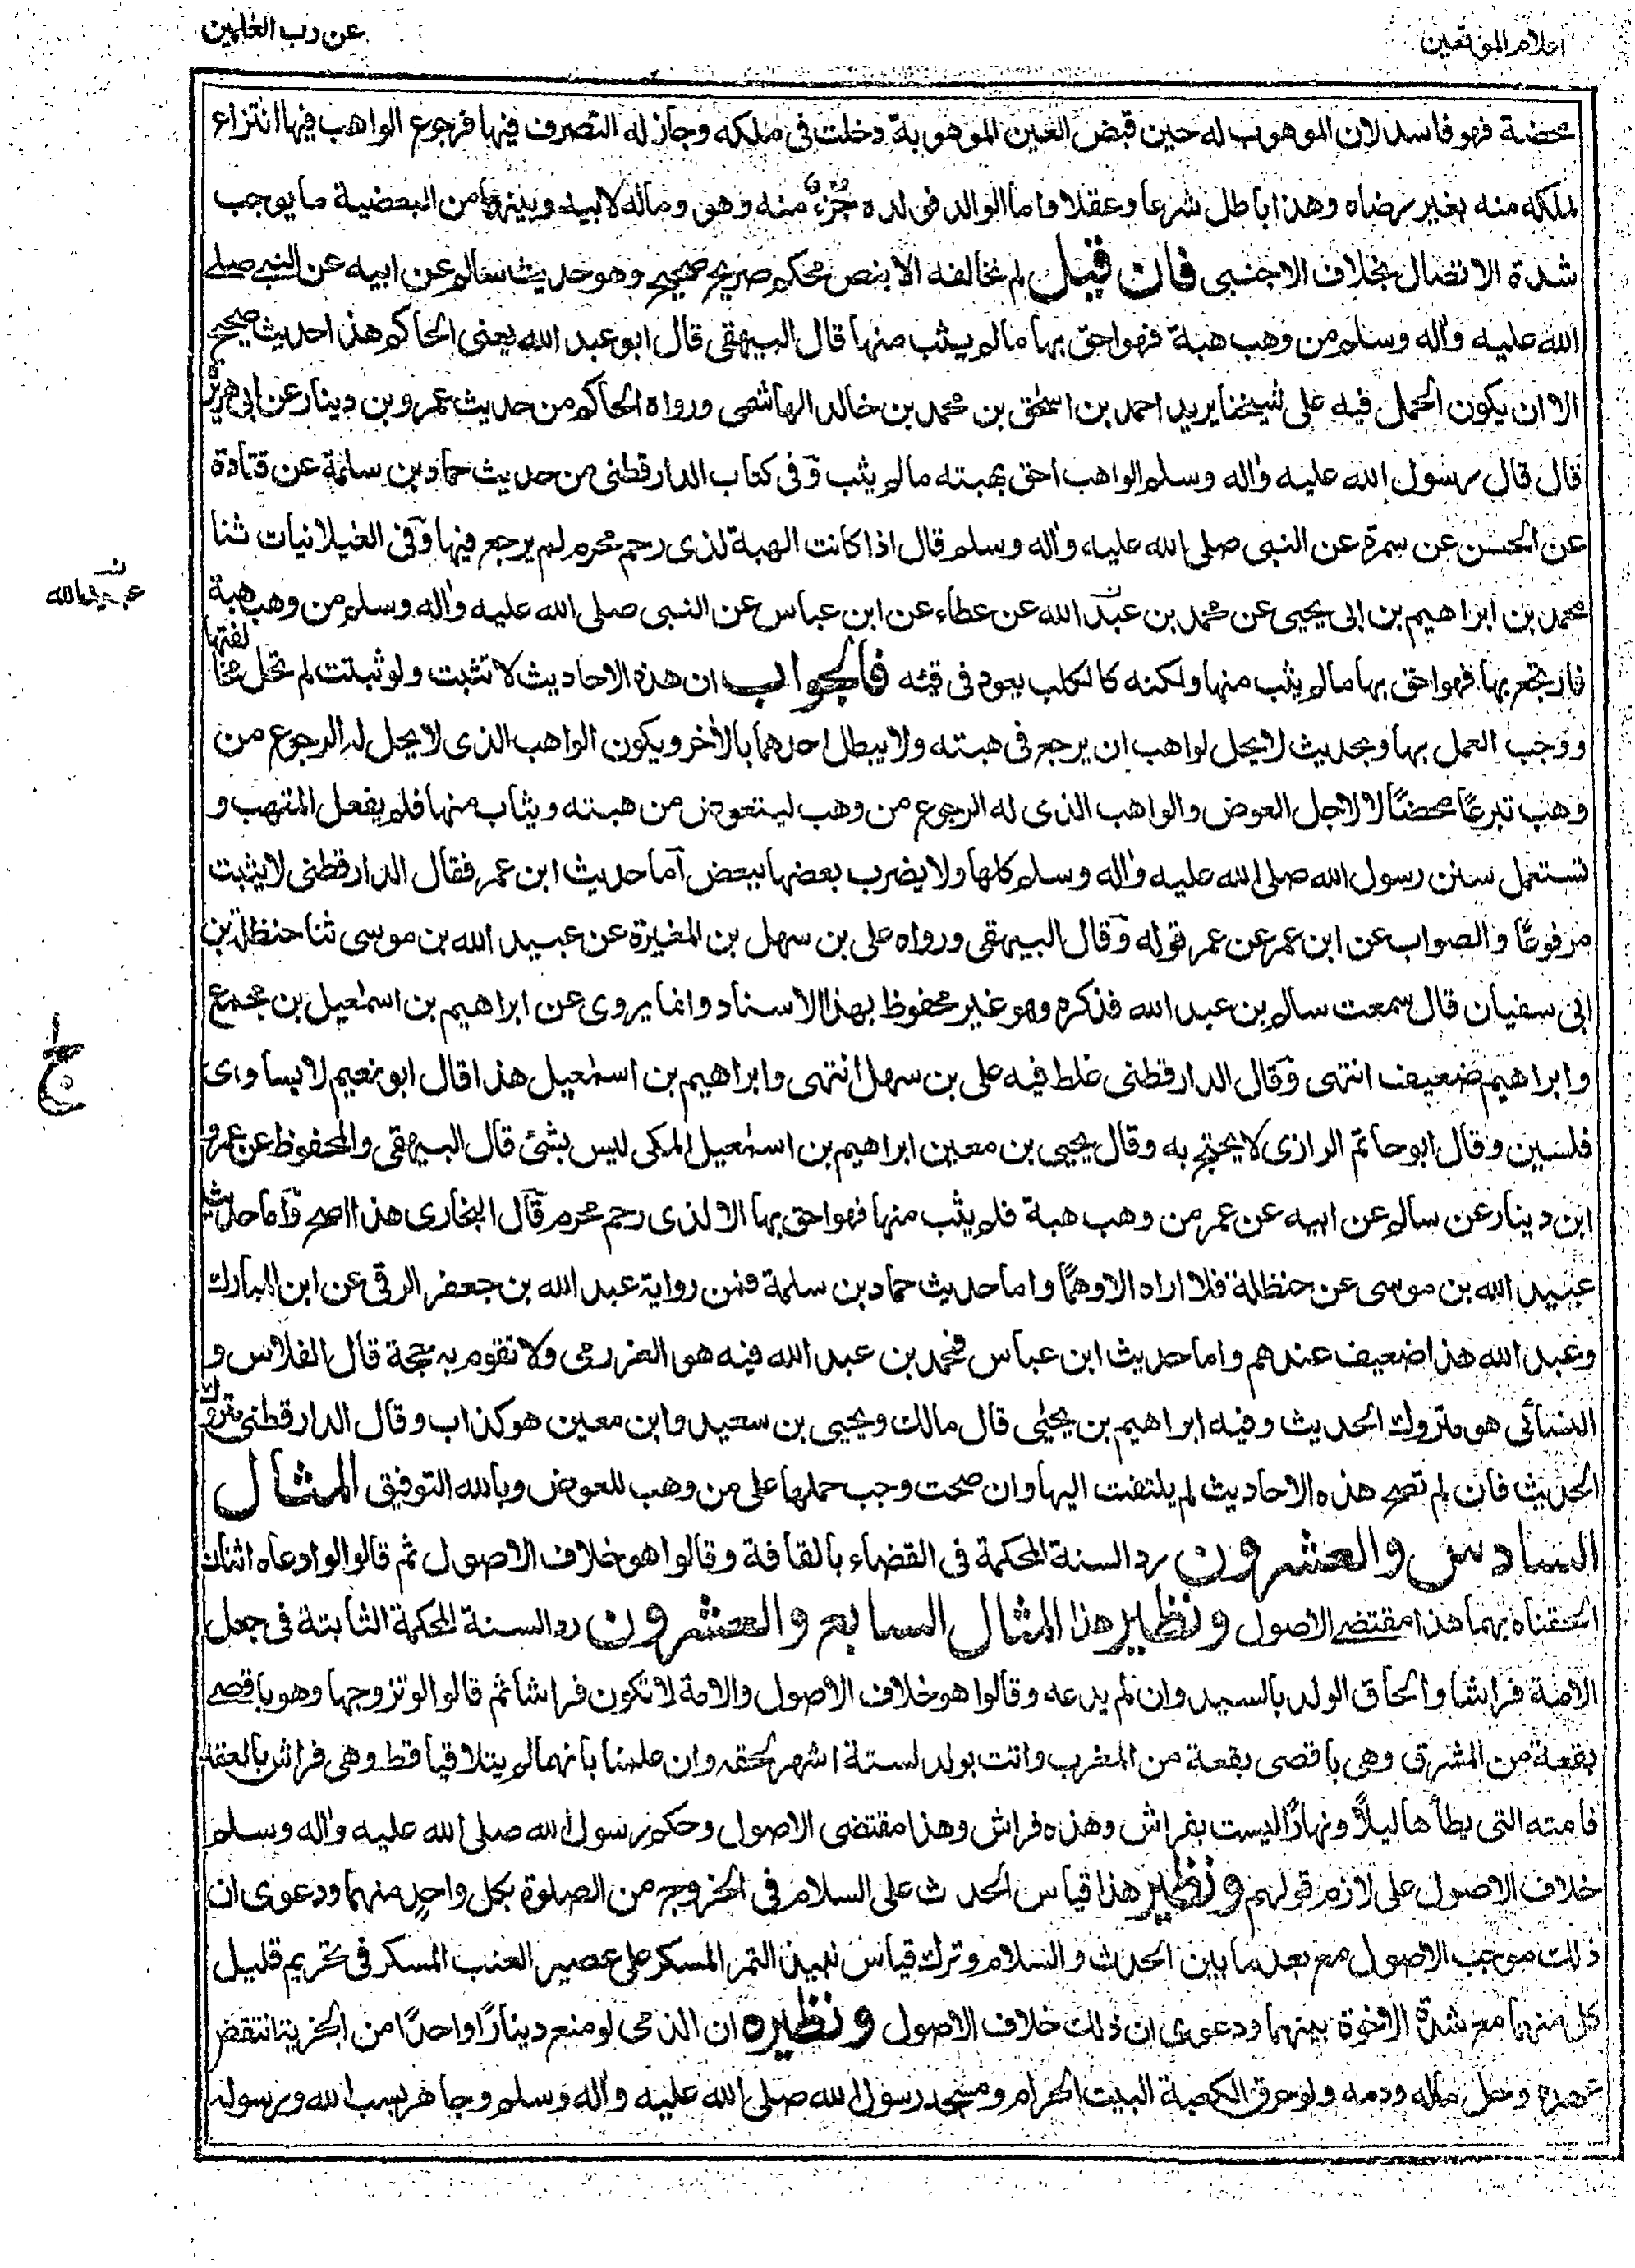 اعلام الموقعين
عن رب العلمين
محضة فهو فاسد لان الموهوب له حين قبض العين الموهوبة دخلت فى ملكه وجاز له التصرف فيها فرجوع الواهب فيها انتزاع
لملكه منه بغير رضاه وهذا باطل شرعا وعقلا واما الوالد فولده جزء منه وهو وماله لابيه وبينهما من البعضية ما يوجب
شدة الاتصال بخلاف الاجنبى فان قيل لم نخالفه الا بنص محكم صريح صحيح وهو حديث سالم عن ابيه عن النبى صلى
الله عليه واله وسلم من وهب هبة فهو احق بها ما لم يثب منها قال البيهقى قال ابو عبد الله يعنى الحاكم هذا حديث صحيح
الا ان يكون الحمل فيه على شيخنا يريد احمد بن اسحق بن محمد بن خالد الهاشمى ورواه الحاكم من حديث عمرو بن دينار عن ابى هريرة
قال قال رسول الله عليه واله وسلم الواهب احق بهبته ما لم يثب وفى كتاب الدارقطنى من حديث حماد بن سلمة عن قتادة
عن الحسن عن سمرة عن النبى صلى الله عليه واله وسلم قال اذا كانت الهبة لذى رحم محرم لم يرجع فيها وفى الغيلانيات ثنا
محمد بن ابراهيم بن ابى يحيى عن محمد بن عبد الله عن عطاء عن ابن عباس عن النبى صلى الله عليه واله وسلم من وهب هبة
عبيد الله
فارتجع بها فهو احق بها ما لم يثب منها ولكنه كالكلب يعود فى قيئه فالجواب ان هذه الاحاديث لا تثبت ولو ثبتت لم تحل مخالفتها
ووجب العمل بها وبحديث لا يحل لواهب ان يرجع فى هبته ولا يبطل احدهما بالاخر ويكون الواهب الذى لا يحل له الرجوع من
وهب تبرعًا محضًا لا لاجل العوض والواهب الذى له الرجوع من وهب ليتعوض من هبته ويثاب منها فلم يفعل المتهب و
تستعمل سنن رسول الله صلى الله عليه واله وسلم كلها ولا يضرب بعضها ببعض اما حديث ابن عمر فقال الدارقطنى لا يثبت
مرفوعًا والصواب عن ابن عمر عن عمر قوله وقال البيهقى ورواه على بن سهل بن المغيرة عن عبيد الله بن موسى ثنا حنظلة بن
ابى سفيان قال سمعت سالم بن عبد الله فذكره وهو غير محفوظ بهذا الاسناد وانما يروى عن ابراهيم بن اسمعيل بن مجمع
وابراهيم ضعيف انتهى وقال الدارقطنى غلط فيه على بن سهل انتهى وابراهيم بن اسمعيل هذا قال ابو نعيم لا يساوى
فلسين وقال ابو حاتم الرازى لا يحتج به وقال يحيى بن معين ابراهيم بن اسمعيل المكى ليس بشئ قال البيهقى والمحفوظ عن عمرو
ابن دينار عن سالم عن ابيه عن عمر من وهب هبة فلم يثب منها فهو احق بها الا لذى رحم محرم قال البخارى هذا اصح واما حديث
عبيد الله بن موسى عن حنظلة فلا اراه الا وهمًا واما حديث حماد بن سلمة فمن رواية عبد الله بن جعفر الرقى عن ابن المبارك
وعبد الله هذا ضعيف عندهم واما حديث ابن عباس فمحمد بن عبد الله فيه هو العزرمى ولا تقوم به حجة قال الفلاس و
النسائى هو متروك الحديث وفيه ابراهيم بن يحيى قال مالك ويحيى بن سعيد وابن معين هو كذاب وقال الدارقطنى متروك
الحديث فان لم تصح هذه الاحاديث لم يلتفت اليها وان صحت وجب حملها على من وهب للعوض وبالله التوفيق المثال
السادس والعشرون رد السنة المحكمة فى القضاء بالقافة وقالوا هو خلاف الاصول ثم قالوا لو ادعاه اثنان
الحقناه بهما هذا مقتضى الاصول ونظير هذا المثال السابع والعشرون رد السنة المحكمة الثابتة فى جعل
الامة فراشا والحاق الولد بالسيد وان لم يدعه وقالوا هو خلاف الاصول والامة لا تكون فراشا ثم قالوا لو تزوجها وهو باقصى
بقعة من المشرق وهى باقصى بقعة من المغرب واتت بولد لستة اشهر لحقه وان علمنا بانهما لم يتلاقيا قط وهى فراش بالعقد
فامته التى يطأها ليلًا ونهارًا ليست بفراش وهذه فراش وهذا مقتضى الاصول وحكم رسول الله صلى الله عليه واله وسلم
خلاف الاصول على لازم قولهم ونظير هذا قياس الحدث على السلام فى الخروج من الصلوة بكل واحدٍ منهما ودعوى ان
ذلك موجب الاصول مع بعد ما بين الحدث والسلام وترك قياس نبيذ التمر المسكر على عصير العنب المسكر فى تحريم قليل
كل منهما مع شدة الاخوة بينهما ودعوى ان ذلك خلاف الاصول ونظيره ان الذمى لو منع دينارًا واحدًا من الجزية انتقض
عهده وحل ماله ودمه ولو حرق الكعبة البيت الحرام ومسجد رسول الله صلى الله عليه واله وسلم وجاهر بسب الله ورسوله